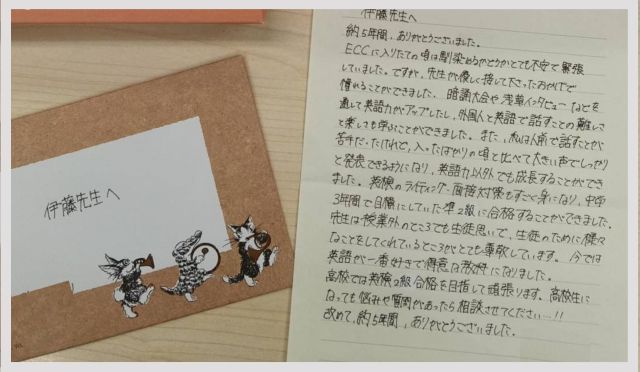 伊藤先生へ
伊藤先生へ
約5年間、ありがとうございました。
ECCに入りたての頃は馴染めるかどうかとても不安で緊張
していました。ですが、先生が優しく接して下さったおかげで
慣れることができました。暗誦大会や浅草インタビューなどを
通して英語力がアップしたし、外国人と英語で話すことの難しさ
と楽しさも学ぶことができました。また、私は人前で話すことが
苦手だったけれど、入ったばかりの頃と比べて大きい声でしっかり
と発表できるようになり、英語力以外でも成長することができ
ました。英検のライティング・面接対策もすごく身になり、中学
3年間で目標にしていた準2級に合格することができました。
先生は授業外のところでも生徒思いで、生徒のために様々
なことをしてくれているところがとても尊敬しています。今では
英語が一番好きで得意な教科になりました。
高校では英検2級合格を目指して頑張ります。高校生に
なっても悩みや質問があったら相談させてください…!!
改めて、約5年間、ありがとうございました。